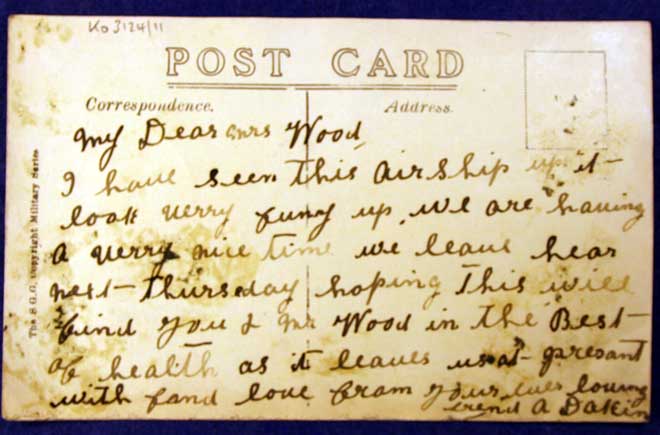 Ko 3124/11
POST CARD
Correspondence.
Address.
The S.G.C. Copyright Military Series
My Dear Mrs Wood
I have seen this airship up it
look verry funy up. we are having
a verry nice time we leave hear
next thursday hoping this will
find you & Mr Wood in the Best
of health as it leaves us at presant
with fand love fram your ever loving
frend A Dakin